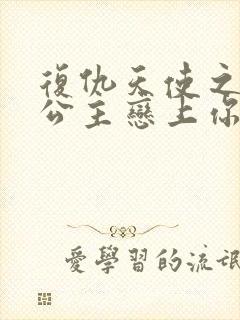 復仇天使之
公主戀上你
愛學習的流氓